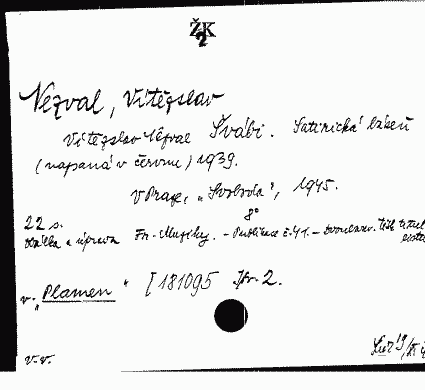 ŽK
2
Nezval, Vítězslav
Vítězslav Nezval Švábi. Satirická báseň
(napsaná v červnu) 1939.
V Praze, "Svoboda", 1945.
22 s. 8°
Obálka a úprava Fr. Muziky. - Publikace č. 41. - Dvoubarev. též titul
v. "Plamen" [181095 2.
v.v.